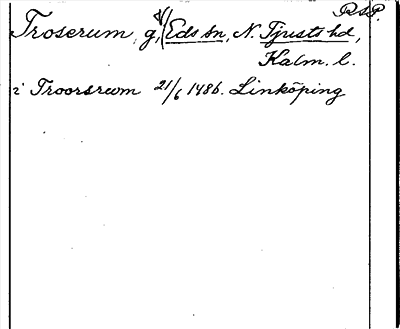 RAP.
Troserum, g., Eds sn, N. Tjusts hd,
Kalm. l.
i Troorsrwm 21/6 1486. Linköping